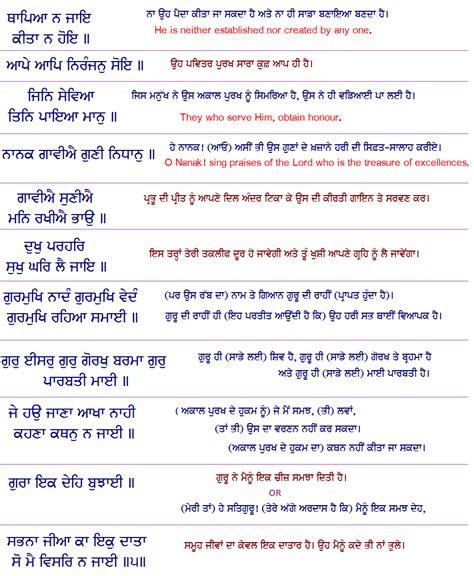 ਥਾਪਿਆ ਨ ਜਾਇ
ਕੀਤਾ ਨ ਹੋਇ ॥
ਨਾ ਉਹ ਪੈਦਾ ਕੀਤਾ ਜਾ ਸਕਦਾ ਹੈ ਅਤੇ ਨਾ ਹੀ ਸਾਡਾ ਬਣਾਇਆ ਬਣਦਾ ਹੈ।
He is neither established nor created by any one.
ਆਪੇ ਆਪਿ ਨਿਰੰਜਨੁ ਸੋਇ ॥
ਉਹ ਪਵਿਤਰ ਪੁਰਖ ਸਾਰਾ ਕੁਛ ਆਪ ਹੀ ਹੈ।
ਜਿਨਿ ਸੇਵਿਆ
ਤਿਨਿ ਪਾਇਆ ਮਾਨੁ ॥
ਜਿਸ ਮਨੁੱਖ ਨੇ ਉਸ ਅਕਾਲ ਪੁਰਖ ਨੂੰ ਸਿਮਰਿਆ ਹੈ, ਉਸ ਨੇ ਹੀ ਵਡਿਆਈ ਪਾ ਲਈ ਹੈ।
They who serve Him, obtain honour.
ਨਾਨਕ ਗਾਵੀਐ ਗੁਣੀ ਨਿਧਾਨੁ ॥
ਹੇ ਨਾਨਕ! (ਆਓ) ਅਸੀਂ ਭੀ ਉਸ ਗੁਣਾਂ ਦੇ ਖ਼ਜ਼ਾਨੇ ਹਰੀ ਦੀ ਸਿਫ਼ਤ-ਸਾਲਾਹ ਕਰੀਏ।
O Nanak! sing praises of the Lord who is the treasure of excellences.
ਗਾਵੀਐ ਸੁਣੀਐ
ਮਨਿ ਰਖੀਐ ਭਾਉ ॥
ਪ੍ਰਭੂ ਦੀ ਪ੍ਰੀਤ ਨੂੰ ਆਪਣੇ ਦਿਲ ਅੰਦਰ ਟਿਕਾ ਕੇ ਉਸ ਦੀ ਕੀਰਤੀ ਗਾਇਨ ਤੇ ਸਰਵਣ ਕਰ।
ਦੁਖੁ ਪਰਹਰਿ
ਸੁਖੁ ਘਰਿ ਲੈ ਜਾਇ ॥
ਇਸ ਤਰ੍ਹਾਂ ਤੇਰੀ ਤਕਲੀਫ ਦੂਰ ਹੋ ਜਾਵੇਗੀ ਅਤੇ ਤੂੰ ਖੁਸ਼ੀ ਆਪਣੇ ਗ੍ਰਹਿ ਨੂੰ ਲੈ ਜਾਵੇਂਗਾ।
ਗੁਰਮੁਖਿ ਨਾਦੰ ਗੁਰਮੁਖਿ ਵੇਦੰ
ਗੁਰਮੁਖਿ ਰਹਿਆ ਸਮਾਈ ॥
(ਪਰ ਉਸ ਰੱਬ ਦਾ) ਨਾਮ ਤੇ ਗਿਆਨ ਗੁਰੂ ਦੀ ਰਾਹੀਂ (ਪ੍ਰਾਪਤ ਹੁੰਦਾ ਹੈ)।
ਗੁਰੂ ਦੀ ਰਾਹੀਂ ਹੀ (ਇਹ ਪਰਤੀਤ ਆਉਂਦੀ ਹੈ ਕਿ) ਉਹ ਹਰੀ ਸਭ ਥਾਈਂ ਵਿਆਪਕ ਹੈ।
ਗੁਰੁ ਈਸਰੁ ਗੁਰੁ ਗੋਰਖੁ ਬਰਮਾ ਗੁਰੁ
ਪਾਰਬਤੀ ਮਾਈ ॥
ਗੁਰੂ ਹੀ (ਸਾਡੇ ਲਈ) ਸ਼ਿਵ ਹੈ, ਗੁਰੂ ਹੀ (ਸਾਡੇ ਲਈ) ਗੋਰਖ ਤੇ ਬ੍ਰਹਮਾ ਹੈ
ਅਤੇ ਗੁਰੂ ਹੀ (ਸਾਡੇ ਲਈ) ਮਾਈ ਪਾਰਬਤੀ ਹੈ।
ਜੇ ਹਉ ਜਾਣਾ ਆਖਾ ਨਾਹੀ
ਕਹਣਾ ਕਥਨੁ ਨ ਜਾਈ ॥
( ਅਕਾਲ ਪੁਰਖ ਦੇ ਹੁਕਮ ਨੂੰ) ਜੇ ਮੈਂ ਸਮਝ, (ਭੀ) ਲਵਾਂ,
(ਤਾਂ ਭੀ) ਉਸ ਦਾ ਵਰਣਨ ਨਹੀਂ ਕਰ ਸਕਦਾ।
(ਅਕਾਲ ਪੁਰਖ ਦੇ ਹੁਕਮ ਦਾ) ਕਥਨ ਨਹੀਂ ਕੀਤਾ ਜਾ ਸਕਦਾ।
ਗੁਰਾ ਇਕ ਦੇਹਿ ਬੁਝਾਈ ॥
ਗੁਰੂ ਨੇ ਮੈਨੂੰ ਇਕ ਚੀਜ਼ ਸਮਝਾ ਦਿਤੀ ਹੈ।
OR
(ਮੇਰੀ ਤਾਂ) ਹੇ ਸਤਿਗੁਰੂ! (ਤੇਰੇ ਅੱਗੇ ਅਰਦਾਸ ਹੈ ਕਿ) ਮੈਨੂੰ ਇਕ ਸਮਝ ਦੇਹ,
ਸਭਨਾ ਜੀਆ ਕਾ ਇਕੁ ਦਾਤਾ
ਸੋ ਮੈ ਵਿਸਰਿ ਨ ਜਾਈ ॥੫॥
ਸਮੂਹ ਜੀਵਾਂ ਦਾ ਕੇਵਲ ਇਕ ਦਾਤਾਰ ਹੈ। ਉਹ ਮੈਨੂੰ ਕਦੇ ਭੀ ਨਾਂ ਭੁਲੇ।